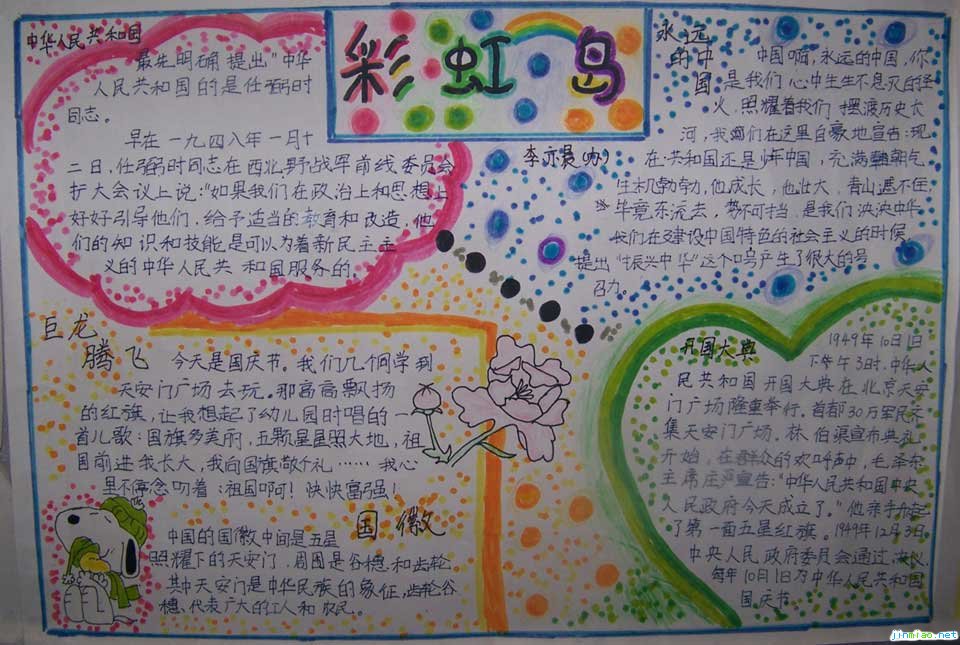 彩虹岛
中华人民共和国
最先明确提出"中华
人民共和国的是任弼时
同志。
早在一九四八年一月十
二日,任弼时同志在西北野战军前线委员会
扩大会议上说:"如果我们在政治上和思想上
好好引导他们,给予适当的教育和改造,他
们的知识和技能是可以为着新民主主
义的中华人民共和国服务的
永远
的中
国
中国啊,永远的中国,你
是我们心中生生不息灭的
火,照耀着我们摆渡历史长
河,我们在这里自豪地宣告:现
在共和国还是少年中国,充满朝气
生机勃勃,他成长,他壮大,青山遮不住,
毕竟东流去,势不可挡,是我们泱泱中华
我们在建设中国特色的社会主义的时候
提出"振兴中华"这个口号产生了很大的号
召力。
李亦晨(办)
巨龙
腾飞
今天是国庆节。我们几个同学到
天安门广场去玩。那高高飘扬
的红旗,让我想起了幼儿园时唱的一
首儿歌:国旗多美丽,五颗星星照大地,祖
国前进我长大,我向国旗敬个礼……我心
里不停念叨着:祖国啊!快快富强!
国徽
中国的国徽中间是五星
照耀下的天安门,周围是谷穗和齿轮
其中天安门是中华民族的象征,齿轮谷
穗、代表广大的工人和农民。
开国大典
1949年10日1日
下午3时,中华人
民共和国开国大典在北京天安
门广场隆重举行。首都30万军民齐
集天安门广场。林伯渠宣布典礼
开始,在群众的欢呼声中,毛泽东
主席庄严宣告:"中华人民共和国中央
人民政府今天成立了。"他亲手升起
了第一面五星红旗。1949年12月3日,
中央人民政府委员会通过决议,
每年10月1日为中华人民共和国
国庆节
jinmiao.net